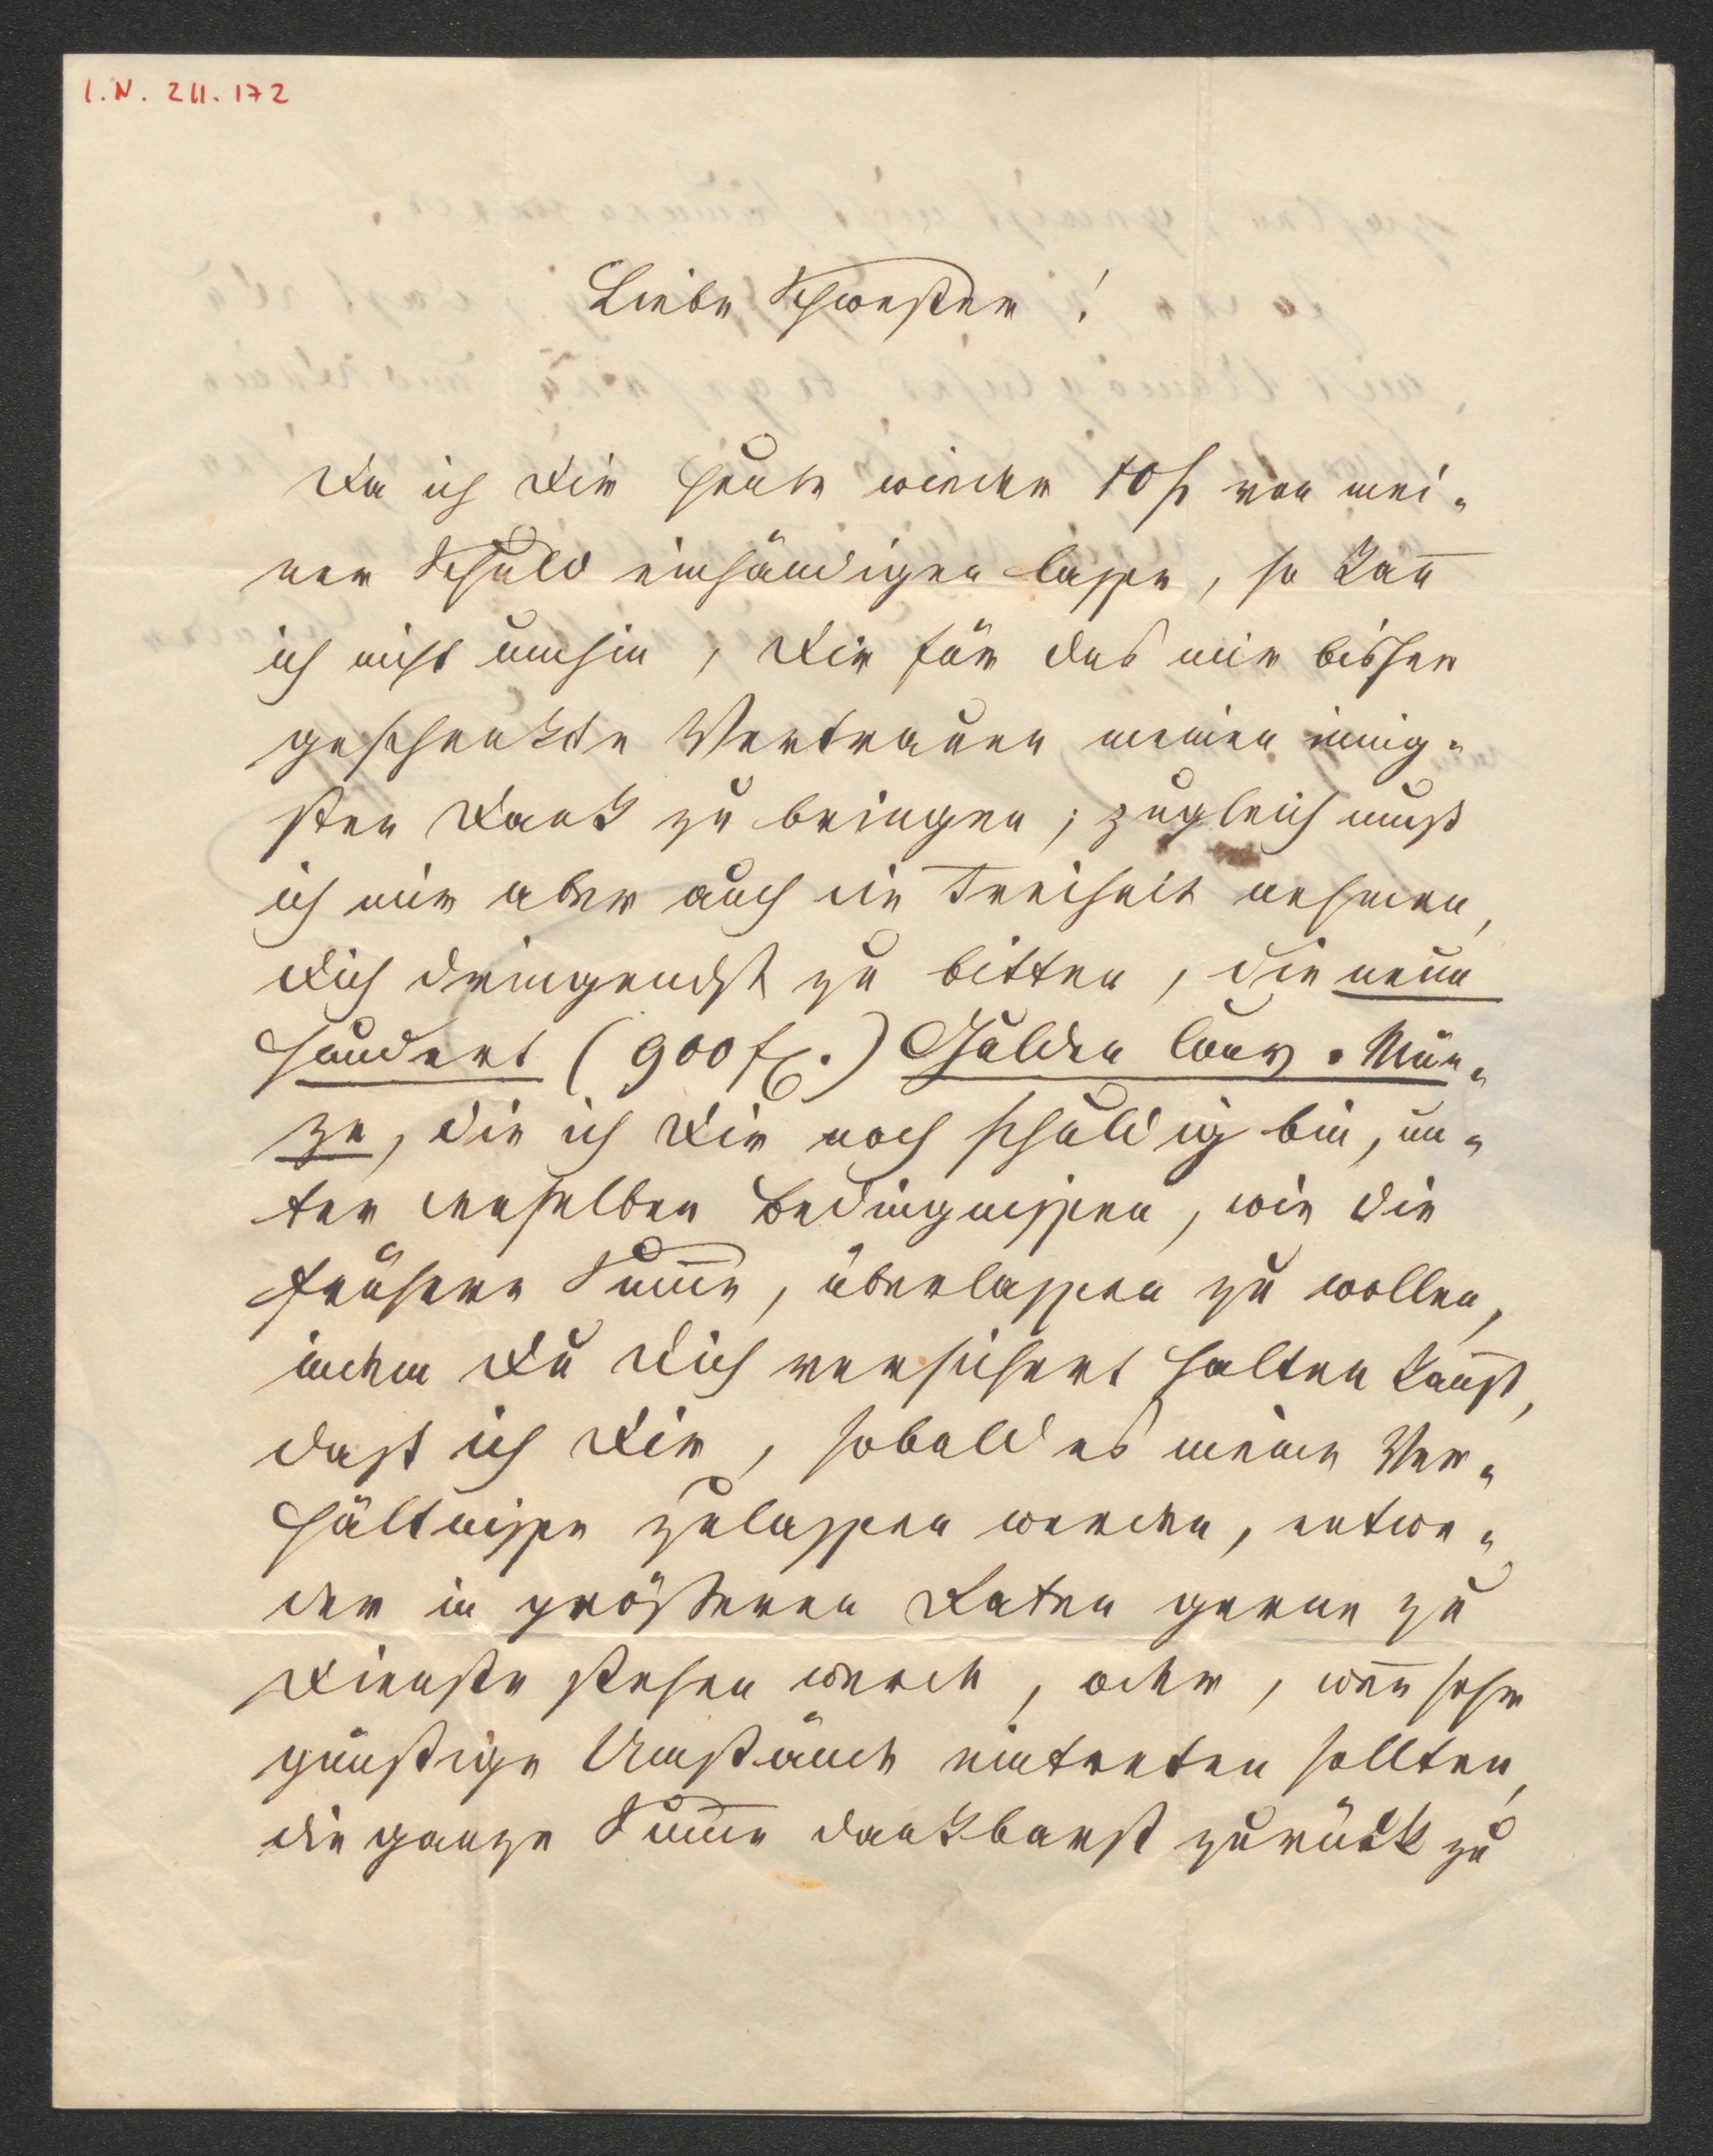 I.N. 211.172
Liebe Schwester!
Da ich Dir heute wieder 10 f von mei-
ner Schuld einhändigen lasse, so kan̅
ich nicht umhin, Dir für das mir bisher
geschenkte Vertrauen meinen innig-
sten Dank zu bringen; zugleich muß
ich mir aber auch die Freiheit nehmen,
Dich dringendst zu bitten, die neun
hundert (900 fl.) Gulden Conv. Mün-
ze, die ich Dir noch schuldig bin, un-
ter denselben Bedingnissen, wie die
frühere Sum̅e, überlassen zu wollen,
indem Du Dich versichert halten kan̅st,
daß ich Dir, sobald es meine Ver-
hältnisse zulassen werden, entwe-
der in größeren Raten gerne zu
Dienste stehen werde, oder, wen̅ sehr
günstige Umstände eintreten sollten,
die ganze Sum̅e dankbarst zurück zu